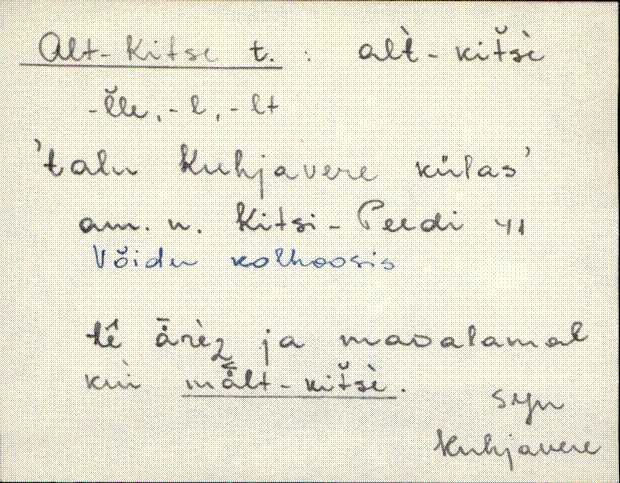 Alt-Kitse t. : al̀t - kit̆sè
-l̆le, -l, -lt
'talu Kuhjavere külas'
am. n. Kitsi-Peedi 41
Võidu kolhoosis
tê ārèz ja madalamal
kui mä̆lt-kit̆sè.
SJn
Kuhjavere